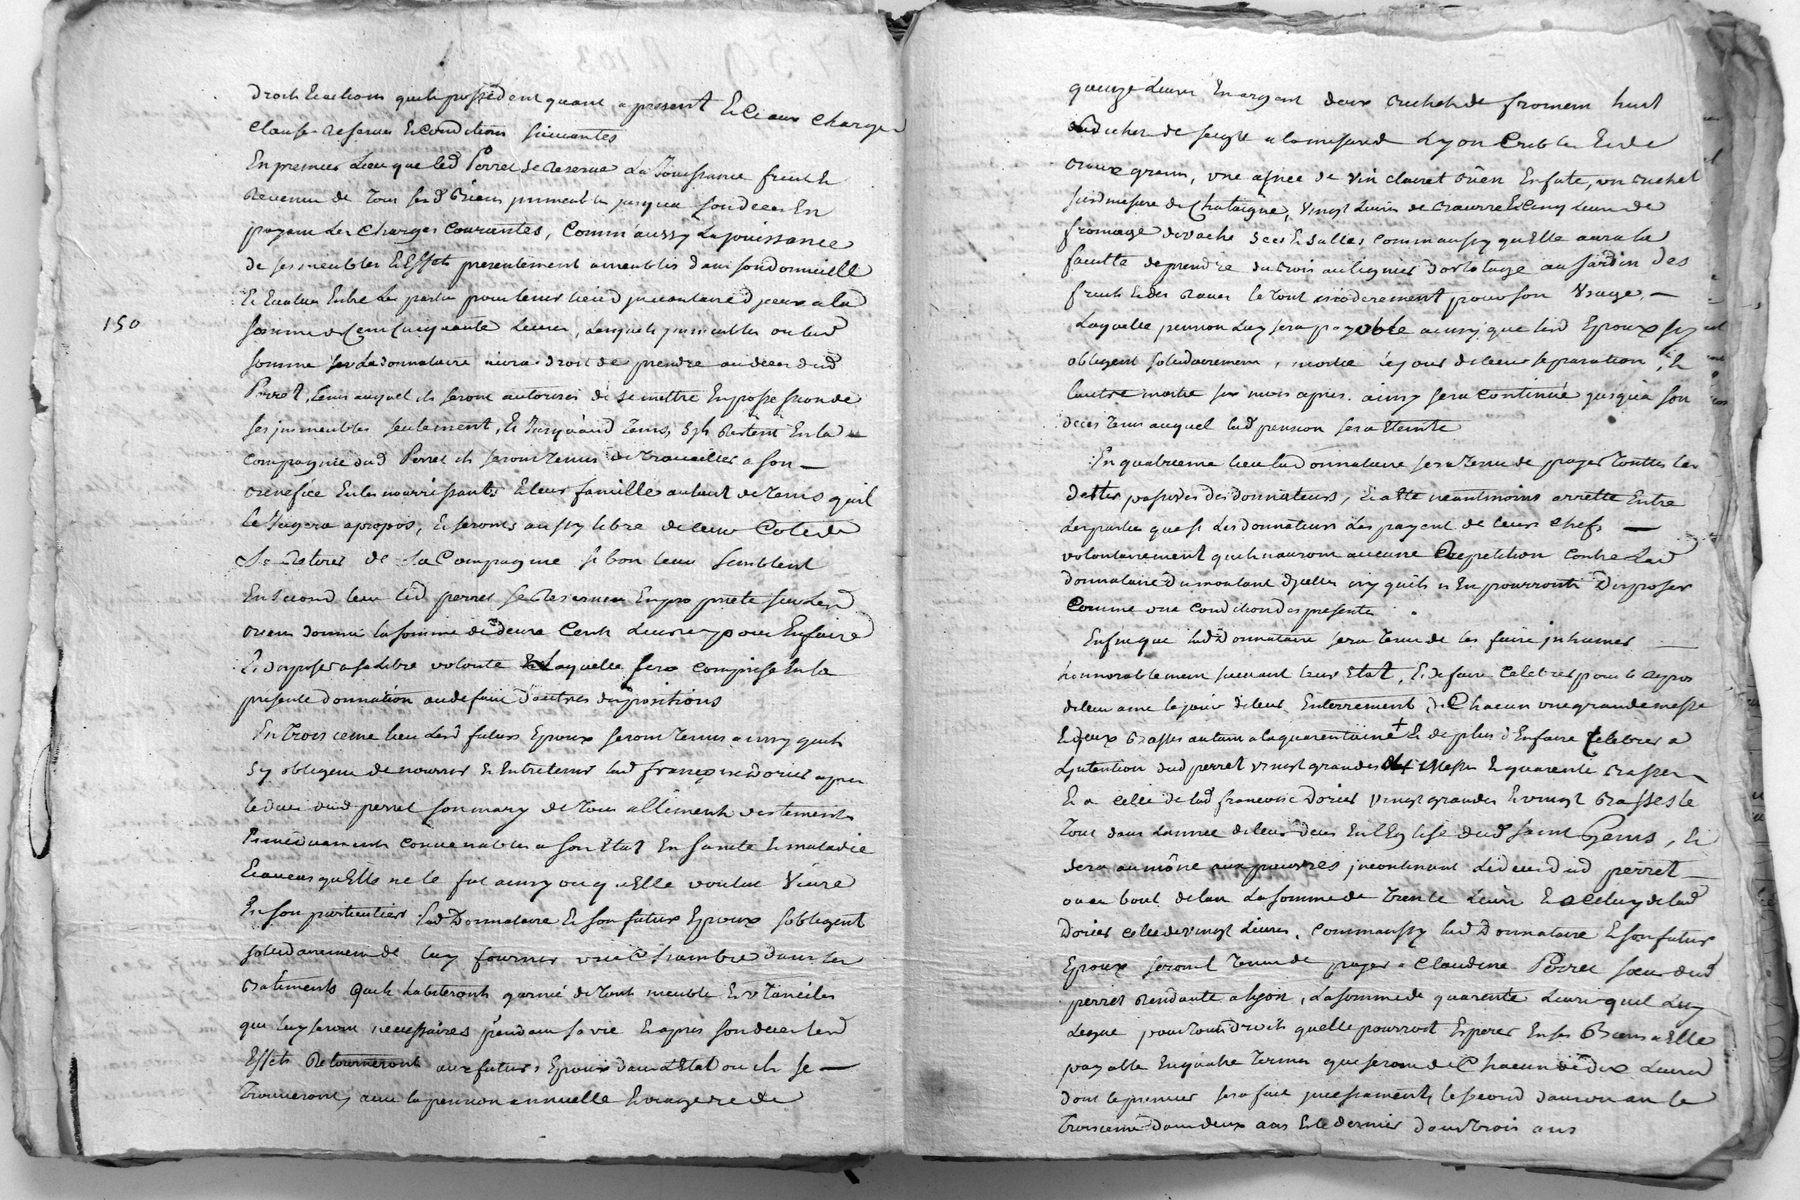 droits et actions quils possedent quant a present Et ce aux charges
clauses reserves Et conditions suivantes
En premier Lieu que led Perret se Reserve La Jouissance fruits Et
Revenus de Tous sesd Biens immeubles jusqua son deces En
payant Les Charges Courantes, Comm'aussy La jouissance
de ses meubles Et Effets presentement ameublis dans son domicille
Et Evalués Entre Les parties pour tenir lieu d'inventaire d'yceux a la
150
somme de Cent Cinquante Livres, Lesquels immeubles ou lad
somme lad donnataire aura droit de prendre au deces dud
Perret, tems auquel ils seront autorisés de se mettre En possession de
ses immeubles seulement, Et Jusqu'aud tems, s'ils Restent En la
compagnie dud Perret ils seront tenus de travailler a son
Benefice En les nourrissants Et leur famille autant de tems quil
le Jugera apropos, Et seronts aussy libre de leur Coté de
Se Retirer de sa Compagnie si bon leur Semblent
En second lieu led perret se Reserve En propriete sur Lesd
Biens donnés la somme de deux Cents Livres pour En faire
Et disposer a sa Libre volonté Laquelle sera comprise En la
presente donnation au defaut d'autres dispositions
En troisieme lieu Lesd futurs Epoux seront tenus ainsy quils
s'y obligent de nourrir Et Entretenir lad françoise dorier apres
le deces dud perret son mary de tous alliments vestements
Et medicaments convenables a son Etat En santé Et maladie
Et au cas qu'Elle ne le fut ainsy ou qu'elle voulut Vivre
En son particulier lad Donnataire Et son futur Epoux s'obligent
solidairement de luy fournir une Chambre dans les
Batiments Quils habiteronts garnie de touts meuble Et Utanciles
qui luy seront necessaires pendant sa vie Et apres son deces lesd
Effets Retourneront aux futurs Epoux dans l'Etat ou ils se
trouveront, avec la pension annuelle Et viagere de
quinze Livres En argent deux Bichets de froment huit
Bichets de seigle a la mesure de Lyon Criblés Et de
Beaux grains, une asnée de Vin clairet Bon En fute, un Bichet
susd mesure de Chataigne, Vingt Livres de Beurre Et Cinq Livres de
fromage de vache secs Et sallés commaussy qu'Elle aura la
faculté de prendre du Bois au Bucher d'ortolage au Jardin des
fruits Et des Raves le tout moderement pour son Usage
Laquelle pension Luy sera payable ainsy que lesd Epoux s'y
obligent solidairement, moitié le jour de leur separation, Et
l'autre moitié six mois apres. ainsy sera Continué jusqu'à son
deces tems auquel lad pension sera Eteinte
En quatrieme lieu lad Donnataire sera tenue de payer toutes les
dettes passives des donnateurs, Et a Eté neantmoins arretté Entre
Les parties que si Les donnateurs Les payent de leurs Chefs
volontairement quils n'auront aucune Repetition contre Lad
donnataire du montant d'ycelles ny quils n'En pourronts Disposer
Comme une Condition des presentes
Enfin que lad Donnataire sera tenue de les faire inhumer
honnorablement suivant leur Etat, Et de faire Celebrer pour le Repos
de leur ame le jour de leur Enterrement de Chacun une grande messe
Et deux Basses autant a la quarentaine + Et de plus d'En faire Celebrer a
L'intention dud perret vingt grandes Messes Et quarente Basses
Et a celle de lad francoise Dorier vingt grandes Et vingt Basses le
tout dans L'année de leurs deces En l'Eglise dud saint Genis, Et
sera aumôné aux pauvres incontinant Le deces dud perret
ou au bout de l'an La somme de trente Livres Et a Celuy de lad
Dorier celle de vingt Livres. Commaussy lad Donnataire Et son futur
Epoux seront tenus de payer a Claudine Perret sœur dud
perret Residante a lyon, La somme de quarente Livres quil Luy
Legue pour touts droits quelle pourroit Esperer En ses Biens a Elle
payable En quatre termes qui seront de Chacun de Dix Livres
dont le premier sera fait incessament, le second dans un an le
troisieme dans deux ans Et le dernier dans trois ans